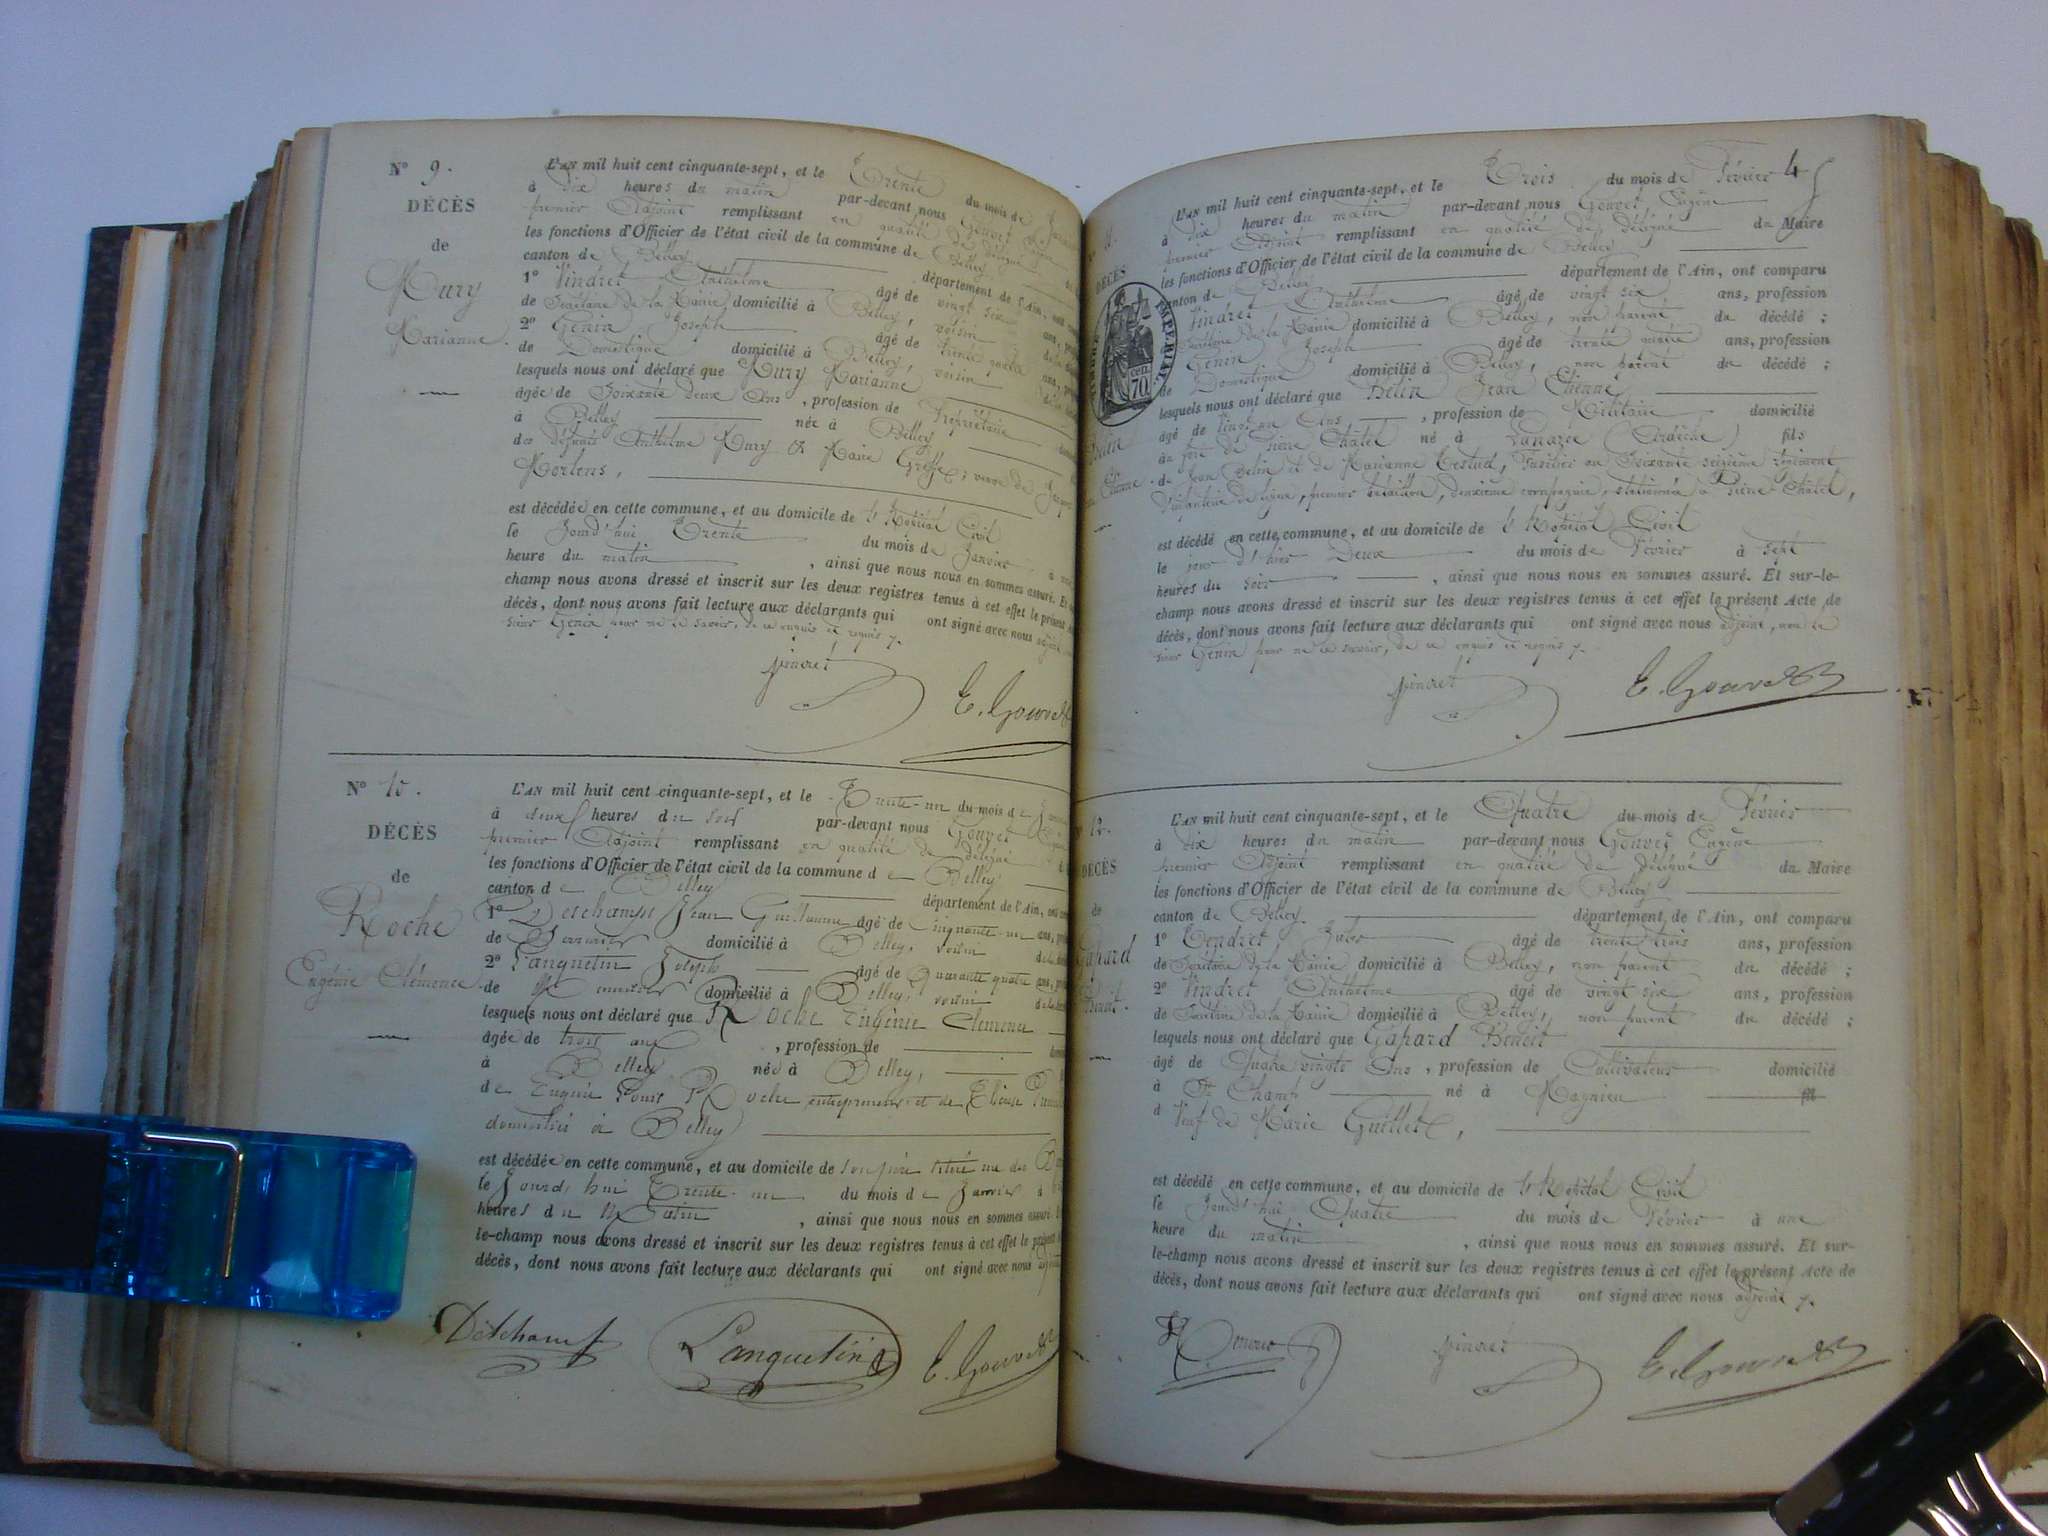 N° 9.
DÉCÈS
de
Mury
Marianne.
L'AN mil huit cent cinquante-sept, et le Trente du mois de
à dix heures du matin par-devant nous Gouvet
premier Adjoint remplissant en qualité de délégué
les fonctions d'Officier de l'état civil de la commune de Belley
canton de Belley département de l'Ain,
1° Vindret Anthelme âgé de vingt six ans,
de Secrétaire de la Mairie domicilié à Belley, voisin
2° Génin Joseph âgé de trente quatre ans,
de Domestique domicilié à Belley, voisin
lesquels nous ont déclaré que Mury Marianne
âgée de Soixante deux Ans, profession de Propriétaire
à Belley née à Belley
des défunts Anthelme Mury & Marie Groffe; veuve de
Morlens,
est décédée en cette commune, et au domicile de l'Hôpital Civil
le Jourd'hui Trente du mois de Janvier à
heure du matin, ainsi que nous nous en sommes assuré. Et
champ nous avons dressé et inscrit sur les deux registres tenus à cet effet le présent
décès, dont nous avons fait lecture aux déclarants qui ont signé avec nous
sieur Génin pour ne le savoir, de ce enquis et requis
E. Gouvet
N° 10.
DÉCÈS
de
Roche
Eugénie Clémence
L'AN mil huit cent cinquante-sept, et le Trente-un du mois de
à deux heures du soir par-devant nous Gouvet
premier Adjoint remplissant en qualité de délégué
les fonctions d'Officier de l'état civil de la commune de Belley
canton de Belley département de l'Ain,
1° Detchamps Jean Guillaume âgé de Cinquante-un ans,
de domicilié à Belley, voisin
2° Lanquetin Joseph âgé de Quarante quatre ans,
de Menuisier domicilié à Belley, voisin
lesquels nous ont déclaré que Roche Eugénie Clémence
âgée de trois ans, profession de
à Belley née à Belley,
de Eugène Louis Roche entrepreneur et de
domiciliés à Belley
est décédée en cette commune, et au domicile de son père situé rue
le Jourd'hui Trente-un du mois de Janvier à
heures du Matin, ainsi que nous nous en sommes assuré
le-champ nous avons dressé et inscrit sur les deux registres tenus à cet effet le présent
décès, dont nous avons fait lecture aux déclarants qui ont signé avec nous
Lanquetin
E. Gouvet
45
DÉCÈS
TIMBRE IMPÉRIAL
70 cen.
L'AN mil huit cent cinquante-sept, et le Trois du mois de Février
à dix heures du matin par-devant nous Gouvet Eugène
premier Adjoint remplissant en qualité de délégué du Maire
les fonctions d'Officier de l'état civil de la commune de Belley
canton de Belley département de l'Ain, ont comparu
Vindret Anthelme âgé de vingt six ans, profession
Secrétaire de la Mairie domicilié à Belley, non parent du décédé;
Génin Joseph âgé de trente quatre ans, profession
de Domestique domicilié à Belley, non parent du décédé;
lesquels nous ont déclaré que Belin Jean Etienne
âgé de Vingt un Ans, profession de Militaire domicilié
au fort de Pierre Châtel né à Lanarce (Ardèche) fils
de Jean Belin et de Marianne Testud, Fusilier au Soixante seizième régiment
d'infanterie de ligne, premier bataillon, deuxième compagnie, stationnée à Pierre-Châtel,
est décédé en cette commune, et au domicile de l'Hôpital Civil
le jour d'hier Deux du mois de Février à sept
heures du soir, ainsi que nous nous en sommes assuré. Et sur-le-
champ nous avons dressé et inscrit sur les deux registres tenus à cet effet le présent Acte de
décès, dont nous avons fait lecture aux déclarants qui ont signé avec nous adjoint, non le
sieur Génin pour ne le savoir, de ce enquis et requis
E. Gouvet
12.
DÉCÈS
de
Gahard
Benoit.
L'AN mil huit cent cinquante-sept, et le Quatre du mois de Février
à dix heures du matin par-devant nous Gouvet Eugène
premier Adjoint remplissant en qualité de délégué du Maire
les fonctions d'Officier de l'état civil de la commune de Belley
canton de Belley département de l'Ain, ont comparu
1° Tendret Jules âgé de trente trois ans, profession
de Secrétaire de la Mairie domicilié à Belley, non parent du décédé;
2° Vindret Anthelme âgé de vingt six ans, profession
de Secrétaire de la Mairie domicilié à Belley, non parent du décédé;
lesquels nous ont déclaré que Gahard Benoit
âgé de Quatre vingts Ans, profession de Cultivateur domicilié
à St Champ né à Magnieu fil
d Veuf de Marie Guillet,
est décédé en cette commune, et au domicile de l'Hôpital Civil
le Jourd'hui Quatre du mois de Février à une
heure du matin, ainsi que nous nous en sommes assuré. Et sur-
le-champ nous avons dressé et inscrit sur les deux registres tenus à cet effet le présent Acte de
décès, dont nous avons fait lecture aux déclarants qui ont signé avec nous adjoint
E. Gouvet